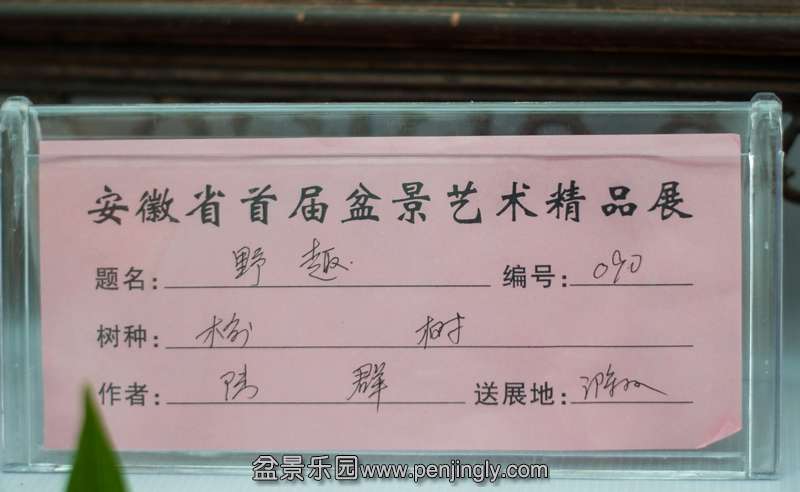 安徽省首届盆景艺术精品展
题名: 野趣 编号: 090
树种: 榆树
作者: 陆群 送展地: 滁州
盆景乐园www.penjingly.com